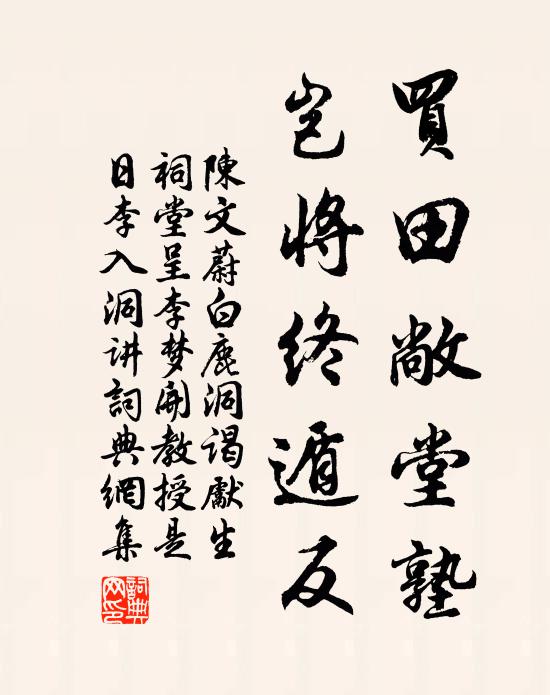 買田敞堂塾
岂將终遁反
陳文蔚白鹿洞谒獻生
祠堂呈李梦開教授是
日李入洞讲詞典網集
詞典
网印